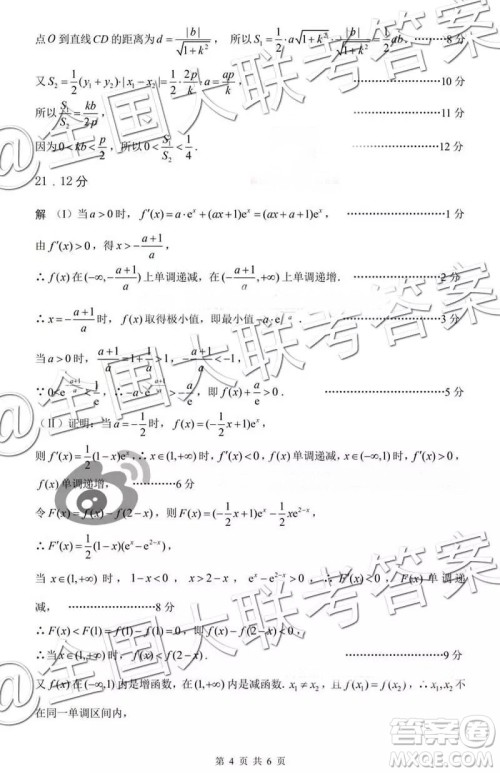 点O到直线CD的距离为d=|b|/√(1+k²), 所以S₁=1/2·a√(1+k²)·|b|/√(1+k²)=1/2ab. ………8分
又S₂=1/2(y₁+y₂)·|x₁-x₂|=1/2·2p/k·a=ap/k, ………10分
所以S₁/S₂=kb/2p, ………11分
因为0<kb<p/2, 所以0<S₁/S₂<1/4. ………12分
21.12分
解 (I)当a>0时, f′(x)=a·eˣ+(ax+1)eˣ=(ax+a+1)eˣ, ………1分
由f′(x)>0, 得x>-(a+1)/a,
∴f(x)在(-∞,-(a+1)/a)上单调递减, 在(-(a+1)/a,+∞)上单调递增. ………2分
∴x=-(a+1)/a时, f(x)取得极小值, 即最小值 ………3分
当a>0时, (a+1)/a=1+1/a>1, -(a+1)/a<-1,
∴f(x)+a/e>0. ………5分
(II)证明:当a=-1/2时, f(x)=(-1/2x+1)eˣ,
则f′(x)=1/2(1-x)eˣ, ∴x∈(1,+∞)时, f′(x)<0, f(x)单调递减, x∈(-∞,1)时, f′(x)>0,
f(x)单调递增, ………6分
令F(x)=f(x)-f(2-x), 则F(x)=(-1/2x+1)eˣ-1/2xe²⁻ˣ,
∴F′(x)=1/2(1-x)(eˣ-e²⁻ˣ),
当x∈(1,+∞)时, 1-x<0, x>2-x, eˣ-e²⁻ˣ>0 ∴F′(x)<0, F(x)单调递
减, ………8分
∴F(x)<F(1)=f(1)-f(1)=0, 即f(x)-f(2-x)<0,
∴当x∈(1,+∞)时, f(x)<f(2-x). ………9分
又f(x)在(-∞,1)内是增函数, 在(1,+∞)内是减函数. x₁≠x₂, 且f(x₁)=f(x₂), ∴x₁, x₂不
在同一单调区间内,
第4页 共6页
@全国大联考答案
@全国大联考答案
@全国大联考答案
答案圈
MXQE.COM